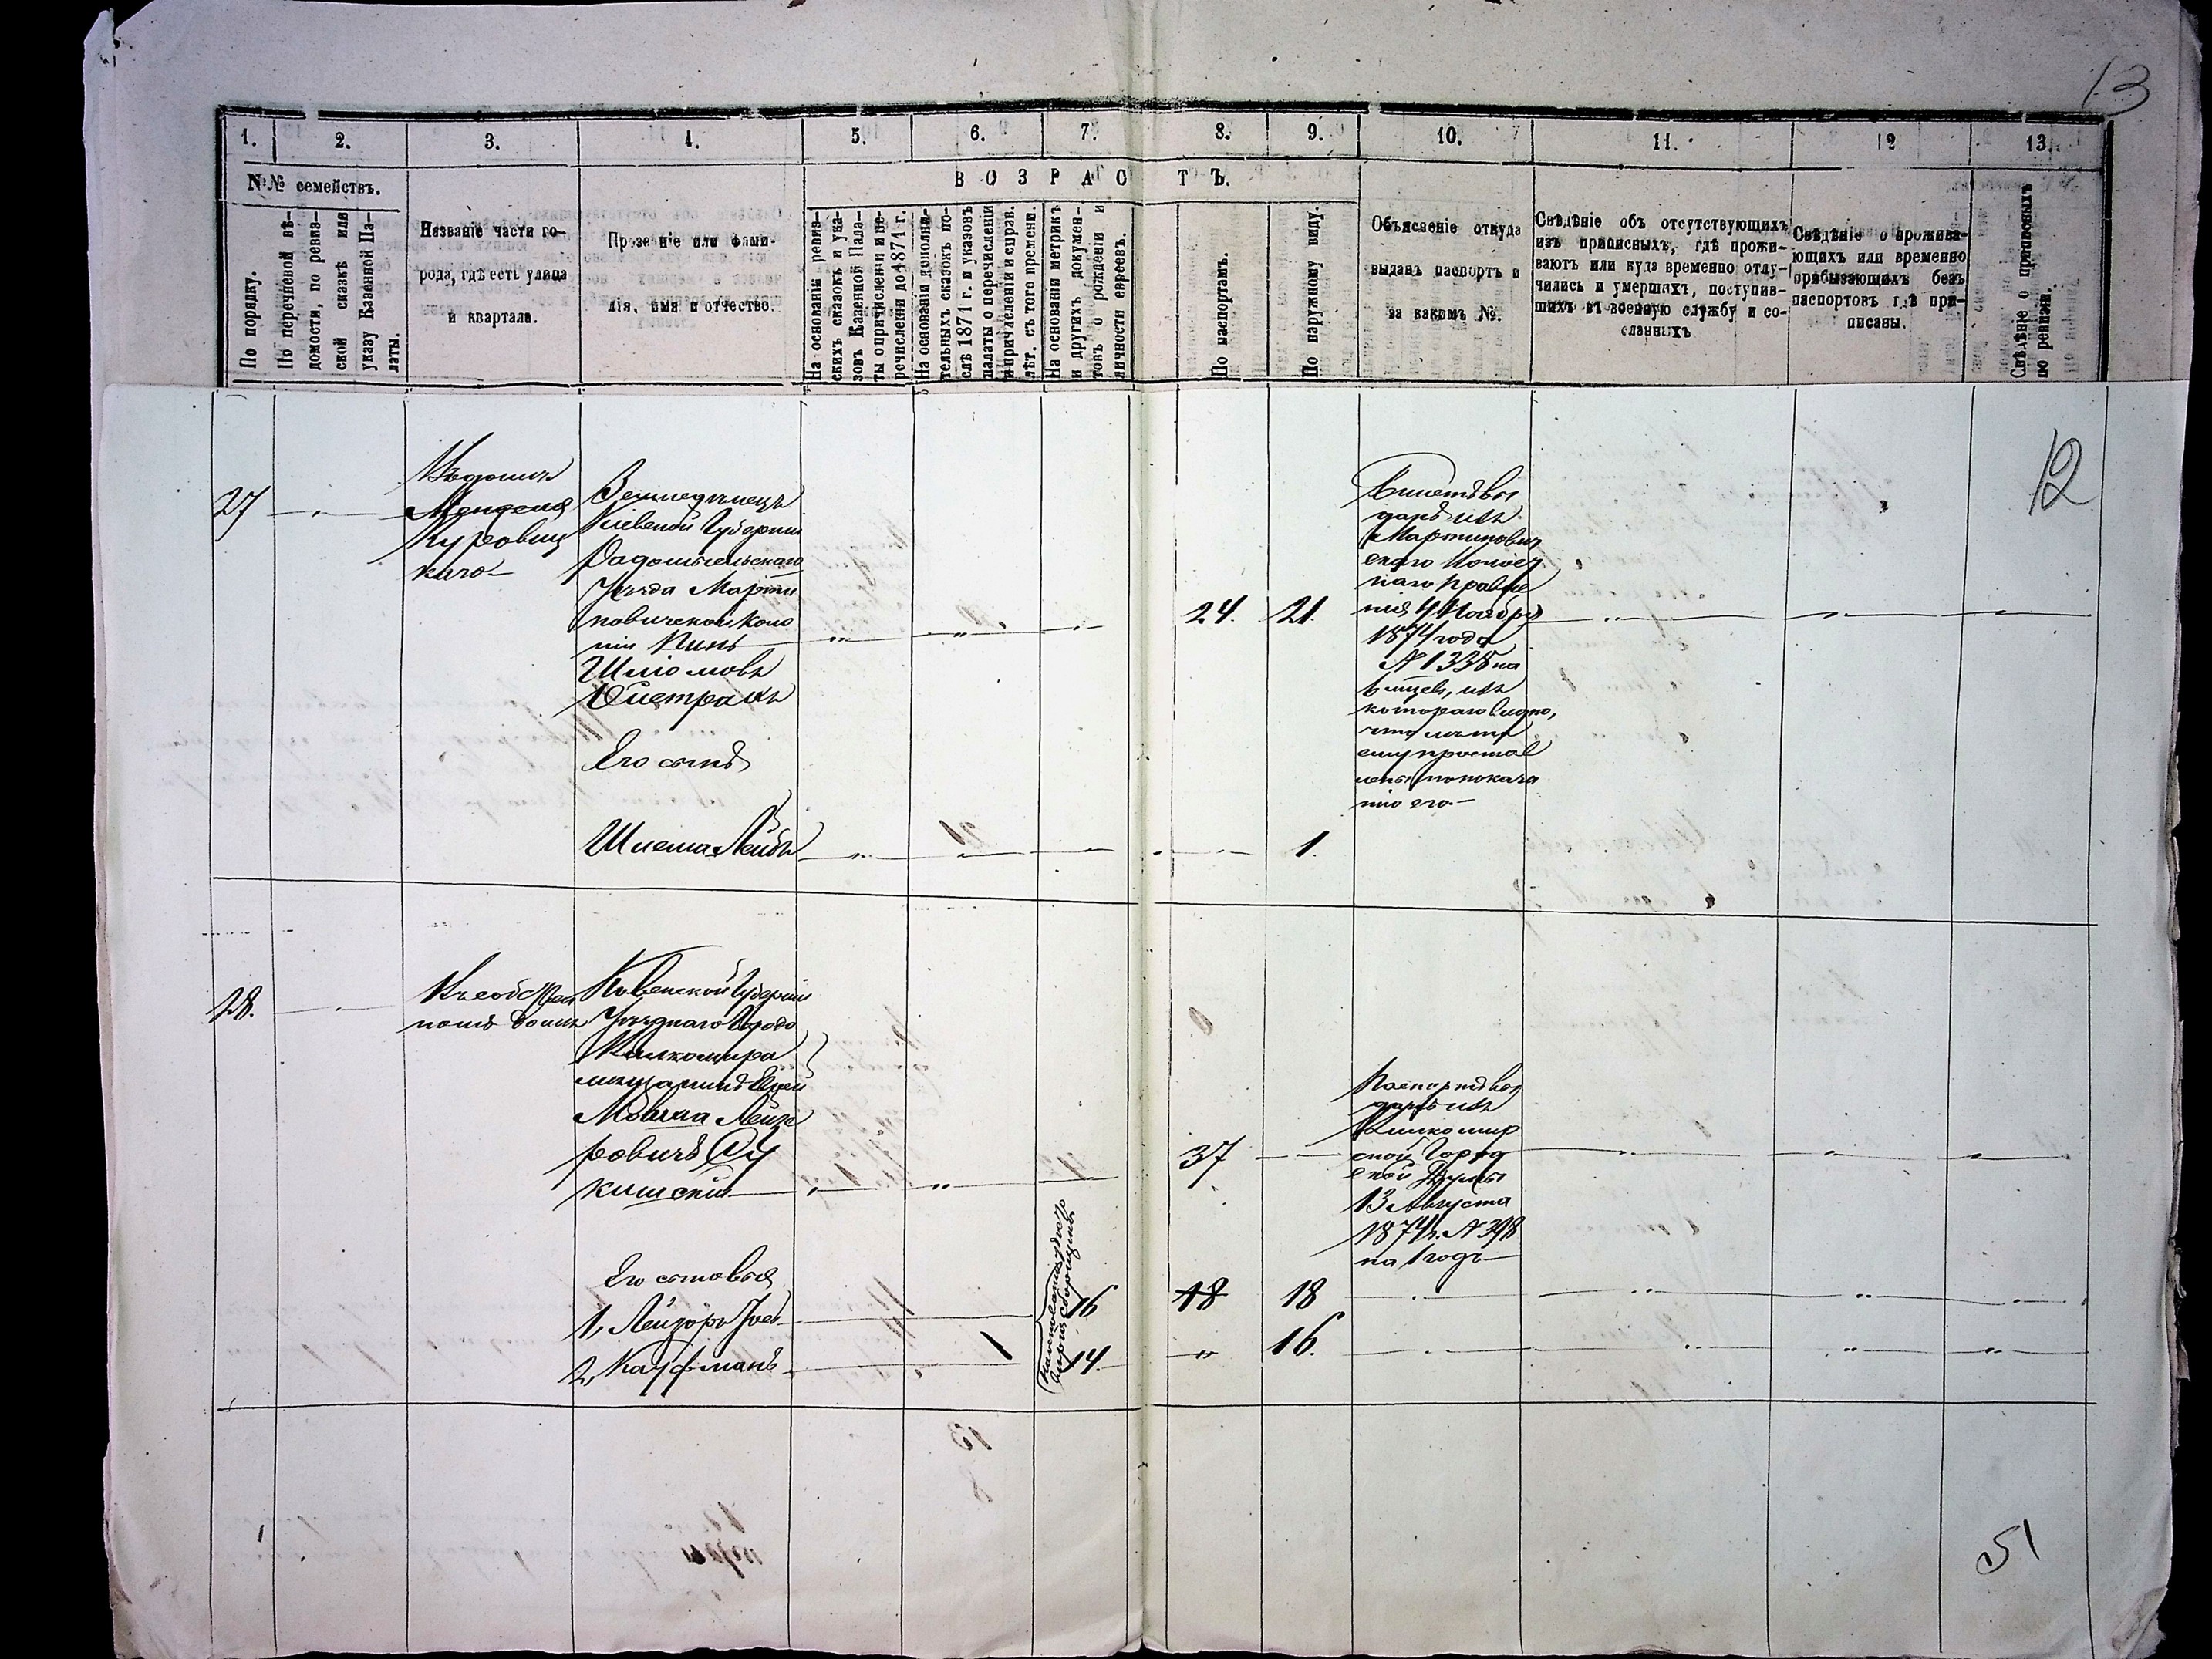 13
1.
2.
3.
4.
5.
6.
7.
8.
9.
10.
11.
12
13.
№№ семействъ.
ВОЗРАСТЪ.
По порядку.
По перечневой вѣ-
домости, по ревиз-
ской сказкѣ или
указу Казенной Па-
латы.
Названіе части го-
рода, гдѣ есть улица
и квартала.
Прозваніе или фами-
лія, имя и отчество.
На основаніи ревиз-
скихъ сказокъ и ука-
зовъ Казенной Пала-
ты о причисленіи и пе-
речисленіи до 1871 г.
На основаніи дополни-
тельныхъ сказокъ по-
слѣ 1871 г. и указовъ
палаты о перечисленіи
и причисленіи и справ.
лѣт. съ того времени.
На основаніи метрикъ
и другихъ докумен-
товъ о рожденіи и
личности евреевъ.
По паспортамъ.
По наружному виду.
Объясненіе откуда
выданъ паспортъ и
за какимъ №.
Свѣдѣніе объ отсутствующихъ
изъ приписныхъ, гдѣ прожи-
ваютъ или куда временно отлу-
чились и умершахъ, поступив-
шихъ въ военную службу и со-
сланныхъ
Свѣдѣніе о прожива-
ющихъ или временно
прибывающихъ безъ
паспортовъ гдѣ при-
писаны.
Свѣдѣніе о
по ревизіи.
12
27
Въ домѣ
Менделя
Куровиц
каго
Земледѣлецъ
Кіевской Губерніи
Радомысльскаго
Уѣзда Марти
повической Коло
ніи Пинь
Шліомовъ
Его сынъ
Шлема Лейбъ
24.
21.
1.
Билетъ вы
данъ изъ
Мартинович
скаго
наго Правле
нія 4 Ноября
1874 года
№ 1338 на
6 мѣсяц, изъ
котораго видно,
что лѣта
ему простав
лены по показа
нію его.
28.
Въ собствен
номъ домѣ
Ковенской Губерніи
Уѣзднаго Города
Вилкомира
мѣщанинъ Еврей
Мовша Лейзе
ровичъ Су
кишскій
37
Паспортъ вы
данъ изъ
Вилкомир
ской Город
ской Думы
13 Августа
1874 г. № 398
на 1 годъ
Его сыновья
1, Лейзоръ
16
18
18
2, Кауфманъ
1
14
16.
51